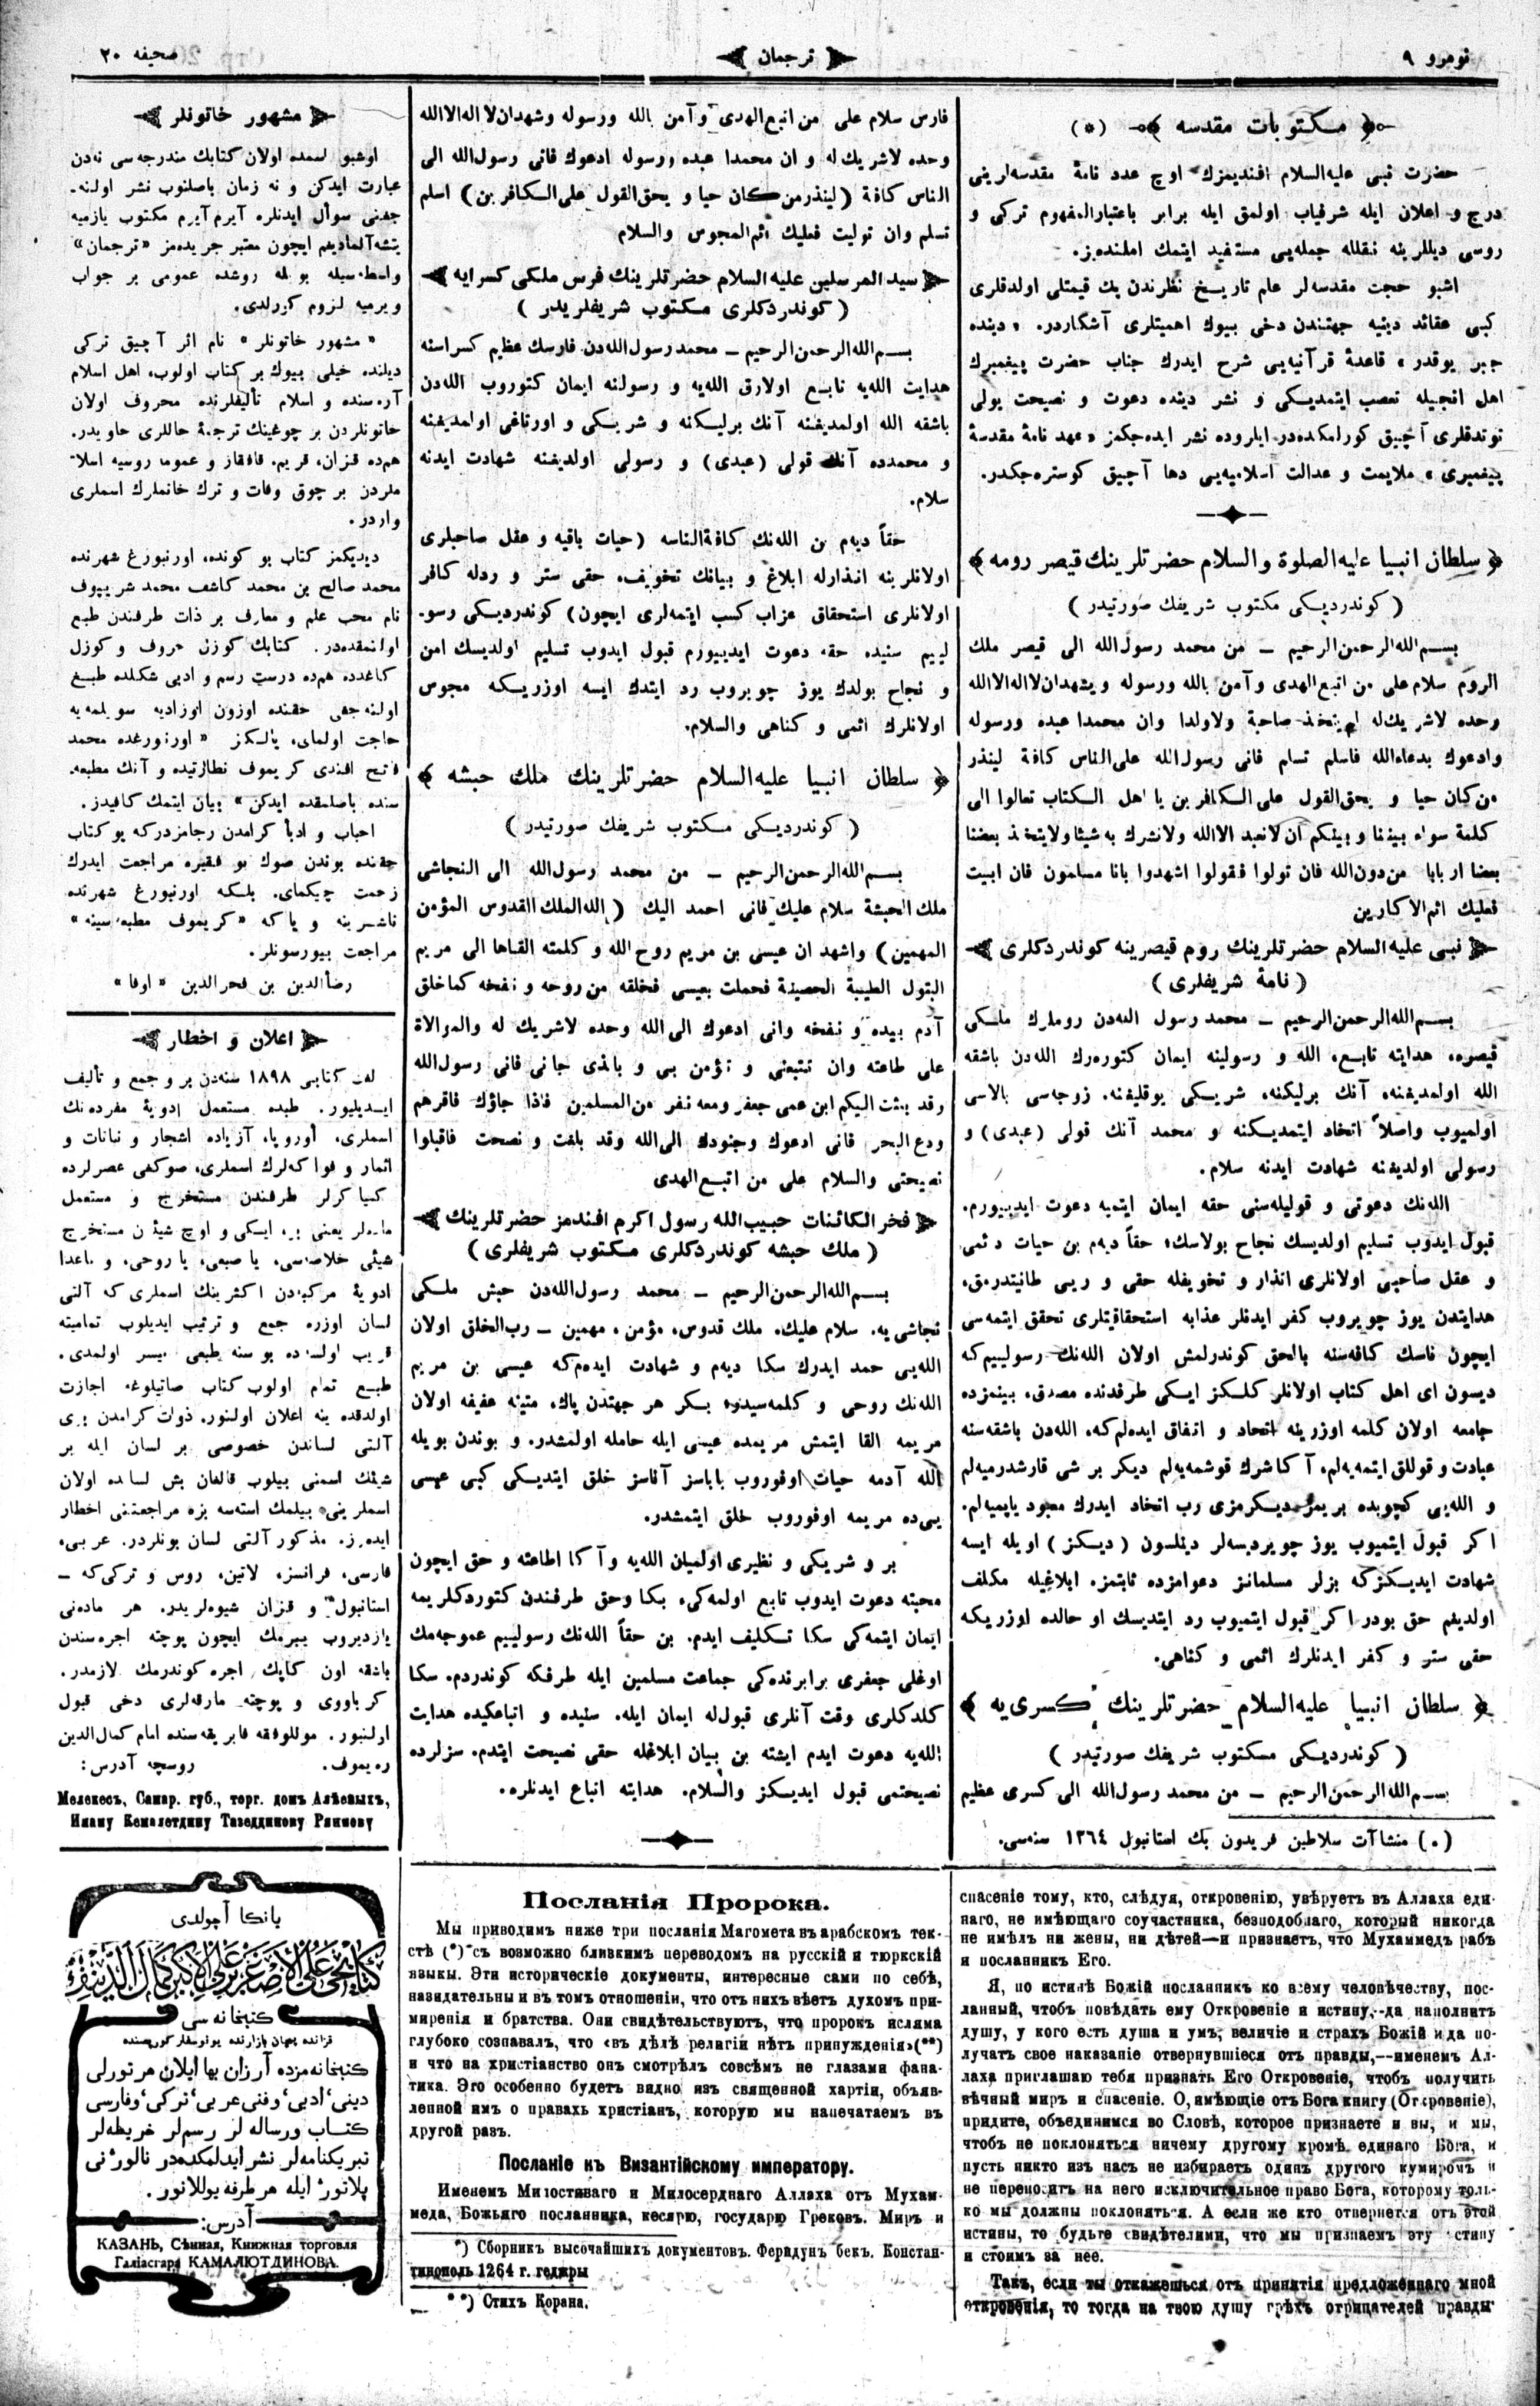 نومرو ٩
ترجمان
صحیفه ٢٠
مكتوبات مقدسه (*)
حضرت نبی علیه‌السلام افندیمزك اوچ عدد نامهٔ مقدسه‌لرینی
درج و اعلان ایله شرفیاب اولمق ایله برابر باعتبار المفهوم تركی و
روسی دیللرینه نقلله جمله‌یی مستفید ایتمك املنده‌یز.
اشبو حجت مقدسه‌لر عام تاریخ نظرندن پك قیمتلی اولدقلری
كبی عقائد دینیه جهتندن دخی بیوك اهمیتلری آشكاردر. «دینده
جبر یوقدر» قاعدهٔ قرآنیه‌یی شرح ایدرك جناب حضرت پیغمبرك
اهل انجیله تعصب ایتمدیكی و نشر دینده دعوت و نصیحت یولی
توتدقلری آچیق كورلمكده‌در. ایلروده نشر ایده‌جكمز «عهد نامهٔ مقدسهٔ
پیغمبری» ملایمت و عدالت اسلامیه‌یی دها آچیق كوستره‌جكدر.
سلطان انبیا علیه‌الصلوة والسلام حضرتلرینك قیصر رومه
(كوندردیكی مكتوب شریفك صورتیدر)
بسم‌الله‌الرحمن‌الرحیم – من محمد رسول‌الله الی قیصر ملك
الروم سلام علی من اتبع‌الهدی وآمن بالله ورسوله ویشهدان‌لااله‌الاالله
وحده لاشریك‌له لم یتخذ صاحبة ولاولدا وان محمدا عبده ورسوله
وادعوك بدعاءالله فاسلم تسلم فانی رسول‌الله علی‌الناس كافة لینذر
من كان حیا و یحق‌القول علی‌الكافرین یا اهل الكتاب تعالوا الی
كلمة سواء بیننا وبینكم ان لانعبد الاالله ولانشرك به‌شیئا ولایتخذ بعضنا
بعضا اربابا من‌دون‌الله فان تولوا فقولوا اشهدوا بانا مسلمون فان ابیت
فعلیك اثم‌الاكارین
نبی علیه‌السلام حضرتلرینك روم قیصرینه كوندردكلری
(نامهٔ شریفلری)
بسم‌الله‌الرحمن‌الرحیم – محمد رسول الله‌دن روملرك ملكی
قیصره. هدایته تابع، الله و رسولینه ایمان كتوره‌رك الله‌دن باشقه
الله اولمدیغنه، آنك برلیكنه، شریكی یوقلیغنه، زوجه‌سی بالاسی
اولمیوب واصلاً اتخاد ایتمدیكنه و محمد آنك قولی (عبدی) و
رسولی اولدیغنه شهادت ایدنه سلام.
الله‌نك دعوتی و قولیله‌سنی حقه ایمان ایتمیه دعوت ایدییورم.
قبول ایدوب تسلیم اولدیسك نجاح بولاسك، حقاً دیه‌م بن حیات دئمی
و عقل صاحبی اولانلری انذار و تخویفله حقی و ربی طانیتدرمق،
هدایتدن یوز چویروب كفر ایدنلر عذابه استحقاقیتلری تحقق ایتمه‌سی
ایچون ناسك كافه‌سنه بالحق كوندرلمش اولان الله‌نك رسولییم‌كه
دیسون ای اهل كتاب اولانلر كلكز ایكی طرفدنده مصدق، بینمزده
جامعه اولان كلمه اوزرینه اتحاد و اتفاق ایده‌لم‌كه، الله‌دن باشقه‌سنه
عبادت و قوللق ایتمه‌یه‌لم، آكا شرك قوشمه‌یه‌لم دیكر بر شی قارشدرمیه‌لم
و الله‌یی كچوبده بریمز دیكرمزی رب اتخاد ایدرك معبود یاپمیه‌لم.
اكر قبول ایتمیوب یوز چویردیسه‌لر دینلسون (دیكز) اویله ایسه
شهادت ایدیكزكه بزلر مسلمانز دعوامزده ثابتمز. ایلاغیله مكلف
اولدیغم حق بودر اكر قبول ایتمیوب رد ایتدیسك او حالده اوزریكه
حقی ستر و كفر ایدنلرك اثمی و كناهی.
سلطان انبیا علیه‌السلام حضرتلرینك كسری‌یه
(كوندردیكی مكتوب شریفك صورتیدر)
بسم‌الله‌الرحمن‌الرحیم – من محمد رسول‌الله الی كسری عظیم
(*) منشاآت سلاطین فریدون بك استانبول ١٢٦٤ سنه‌سی.
فارس سلام علی من اتبع‌الهدی وآمن بالله ورسوله وشهدان‌لااله‌الاالله
وحده لاشریك‌له و ان محمدا عبده ورسوله ادعوك فانی رسول‌الله الی
الناس كافة (لینذرمن كان حیا و یحق‌القول علی‌الكافرین) اسلم
تسلم وان تولیت فعلیك اثم‌المجوس والسلام
سید المرسلین علیه السلام حضرتلرینك فرس ملكی كسرایه
(كوندردكلری مكتوب شریفلریدر)
بسم‌الله‌الرحمن‌الرحیم – محمد رسول‌الله‌دن فارسك عظیم كسراسنه
هدایت الله‌یه تابع اولارق الله‌یه و رسولنه ایمان كتوروب الله‌دن
باشقه الله اولمدیغنه آنك برلیكنه و شریكی و اورتاغی اولمدیغنه
و محمدده آنك قولی (عبدی) و رسولی اولدیغنه شهادت ایدنه
سلام.
حقاً دیه‌م بن الله‌نك كافة‌الناسه (حیات باقیه و عقل صاحبلری
اولانلرینه انذارله ابلاغ و بیانك تخویف، حقی ستر و ردله كافر
اولانلری استحقاق عزاب كسب ایتمه‌لری ایچون) كوندردیكی رسو-
لییم سنیده حقه دعوت ایدییورم قبول ایدوب تسلیم اولدیسك امن
و نجاح بولدك یوز چویروب رد ایتدك ایسه اوزریكه مجوس
اولانلرك اثمی و كناهی والسلام.
سلطان انبیا علیه‌السلام حضرتلرینك ملك حبشه
(كوندردیكی مكتوب شریفك صورتیدر)
بسم‌الله‌الرحمن‌الرحیم – من محمد رسول‌الله الی النجاشی
ملك‌الحبشة سلام علیك فانی احمد الیك (الله‌الملك‌القدوس المؤمن
المهمین) واشهد ان عیسی بن مریم روح الله و كلمته القاها الی مریم
البتول الطیبة الحصینة فحملت بعیسی فخلقه من‌روحه و نفخه كماخلق
آدم بیده و نفخه وانی ادعوك الی‌الله وحده لاشریك له والموالاة
علی طاعته وان تتبعنی و تؤمن بی و بالذی جانی فانی رسول‌الله
وقد بعثت الیكم ابن عمی جعفر ومعه نفر من‌المسلمین فاذا جاؤك فاقرهم
ودع البحر فانی ادعوك وجنودك الی‌الله وقد بلغت و نصحت فاقبلوا
نصیحتی والسلام علی من اتبع‌الهدی
فخر الكائنات حبیب‌الله رسول اكرم افندمز حضرتلرینك
(ملك حبشه كوندردكلری مكتوب شریفلری)
بسم‌الله‌الرحمن‌الرحیم – محمد رسول‌الله‌دن حبش ملكی
نجاشی‌یه. سلام علیك، ملك قدوس، مؤمن، مهمین – رب‌الخلق اولان
الله‌یی حمد ایدرك سكا دیه‌م و شهادت ایده‌م‌كه عیسی بن مریم
الله‌نك روحی و كلمه‌سیدر، بكر هر جهتدن پاك، متینه عفیفه اولان
مریمه القا ایتمش مریمده عیسی ایله حامله اولمشدر. و بوندن بویله
الله آدمه حیات اوفوروب باباسز آناسز خلق ایتدیكی كبی عیسی
یی‌ده مریمه اوفوروب خلق ایتمشدر.
بر و شریكی و نظیری اولمیان الله‌یه وآكا اطاعته و حق ایچون
محبته دعوت ایدوب تابع اولمه‌كی، بكا وحق طرفندن كتوردكلریمه
ایمان ایتمه‌كی سكا تكلیف ایدم. بن حقاً الله‌نك رسولییم عموجه‌مك
اوغلی جعفری برابرنده‌كی جماعت مسلمین ایله طرفكه كوندردم. سكا
كلدكلری وقت آنلری قبول‌له ایمان ایله. سنیده و اتباعكیده هدایت
الله‌یه دعوت ایدم ایشته بن بیان ابلاغله حقی نصیحت ایتدم. سزلرده
نصیحتمی قبول ایدیكز والسلام. هدایته اتباع ایدنلره.
مشهور خاتونلر
اوشبو اسمده اولان كتابك مندرجه‌سی نه‌دن
عبارت ایدكن و نه زمان باصلنوب نشر اولنه-
جغنی سوأل ایدنلره آیرم آیرم مكتوب یازمیه
یتشه‌آلمادیغم ایچون معتبر جریده‌مز «ترجمان»
واسطه‌سیله بو‌له روشده عمومی بر جواب
ویرمیه لزوم كورلدی.
«مشهور خاتونلر» نام اثر آچیق تركی
دیلنده خیلی بیوك بر كتاب اولوب، اهل اسلام
آره‌سنده و اسلام تألیفلرنده معروف اولان
خاتونلردن بر چوغینك ترجمهٔ حاللری حاویدر.
هم‌ده قزان، قریم، قافقاز و عموما روسیه اسلا-
ملردن بر چوق وفات و ترك خانملرك اسملری
واردر.
دیدیكمز كتاب بو كونده، اورنبورغ شهرنده
محمد صالح بن محمد كاشف محمد شریپوف
نام محب علم و معارف بر ذات طرفندن طبع
اولنمقده‌در. كتابك كوزل حروف و كوزل
كاغدده هم‌ده درست رسم و ادبی شكلده طبع
اولنه‌جغی حقنده اوزون اوزادیه سویلمه‌یه
حاجت اولمای، یالكز «اورنبورغده محمد
فاتح افندی كریموف نظارتیده و آنك مطبعه-
سنده باصلمقده ایدكن» بیان ایتمك كافیدر.
احباب و ادبأ كرامدن رجامزدركه بو كتاب
حقنده بوندن صوك بو فقیره مراجعت ایدرك
زحمت چیكمای، بلكه اورنبورغ شهرنده
ناشرینه و یاكه «كریموف مطبعه‌سینه»
مراجعت بیورسونلر.
رضأالدین بن فخرالدین «اوفا»
اعلان و اخطار
لغت كتابی ١٨٩٨ سنه‌دن برو جمع و تألیف
ایدیلیور. طبده مستعمل ادویهٔ مفرده‌نك
اسملری، أوروپا، آزیاده اشجار و نباتات و
اثمار و فواكه‌لرك اسملری، صوكغی عصرلرده
كمیاكرلر طرفندن مستخرج و مستعمل
ماده‌لر یعنی بر، ایكی و اوچ شیئن مستخرج
شیئی خلاصه‌سی، یا صبغی، یا روحی، و ماعدا
ادویهٔ مركبه‌دن اكثرینك اسملری كه آلتی
لسان اوزره جمع و ترتیب ایدیلوب تمامیته
قریب اولسه‌ده بو سنه طبعی میسر اولمدی.
طبع تمام اولوب كتاب صاتیلوغه اجازت
اولدقده ینه اعلان اولنور. ذوات كرامدن بری
آلتی لساندن خصوصی بر لسان ایله بر
شیئك اسمنی بیلوب قالغان بش لساده اولان
اسملرینی بیلمك استه‌سه بزه مراجعتنی اخطار
ایده‌رز. مذكور آلتی لسان بونلردر. عربی،
فارسی، فرانسز، لاتین، روس و تركی‌كه –
استانبول و قزان شیوه‌لریدر. هر ماده‌نی
یازدیروب ییبرمك ایچون پوچته اجره‌سندن
باشقه اون كاپك اجره كوندرمك لازمدر.
كرباووی و پوچته مارقه‌لری دخی قبول
اولنبور. موللوفقه فابریقه‌سنده امام كمال‌الدین
ره‌یموف. روسچه آدرس:
Мелекесъ, Самар. губ., торг. домъ Алѣевыхъ,
Имаму Кемалетдину Тазеддинову Ряимову
یانكا آچولدی
كتبخانه‌سی
قزانده پچان بازارنده یونوسفلر كورپسنده
كتبخانه‌مزده آرزان بها ایلان هر تورلی
دینی، ادبی، وفنی عربی، تركی، وفارسی
كتاب ورساله‌لر رسم‌لر خریطه‌لر
تبریكنامه‌لر نشر ایدلمكده‌در نالوژنی
پلاتوژ ایله هر طرفه یوللانور.
آدرس:
КАЗАНЬ, Сѣнная, Книжная торговля
Галіасгара КАМАЛЮТДИНОВА.
Посланія Пророка.
Мы приводимъ ниже три посланія Магомета въ арабскомъ тек-
стѣ (*) съ возможно близкимъ переводомъ на русскій и тюркскій
языки. Эти историческіе документы, интересные сами по себѣ,
назидательны и въ томъ отношеніи, что отъ нихъ вѣетъ духомъ при-
миренія и братства. Они свидѣтельствуютъ, что пророкъ исляма
глубоко сознавалъ, что «въ дѣлѣ религіи нѣтъ принужденія»(**)
и что на христіанство онъ смотрѣлъ совсѣмъ не глазами фана-
тика. Это особенно будетъ видно изъ священной хартіи, объяв-
ленной имъ о правахъ христіанъ, которую мы напечатаемъ въ
другой разъ.
Посланіе къ Византійскому императору.
Именемъ Милостиваго и Милосерднаго Аллаха отъ Мухам-
меда, Божьяго посланника, кесярю, государю Грековъ. Миръ и
*) Сборникъ высочайшихъ документовъ. Феридунъ бекъ. Констан-
тинополь 1264 г. геджры
**) Стихъ Корана.
спасеніе тому, кто, слѣдуя, откровенію, увѣруетъ въ Аллаха еди-
наго, не имѣющаго соучастника, безподобнаго, который никогда
не имѣлъ ни жены, ни дѣтей—и признаетъ, что Мухаммедъ рабъ
и посланникъ Его.
Я, по истинѣ Божій посланникъ ко всему человѣчеству, пос-
ланный, чтобъ повѣдать ему Откровеніе и истину,--да наполнитъ
душу, у кого есть душа и умъ, величіе и страхъ Божій и да по-
лучатъ свое наказаніе отвернувшіеся отъ правды,—именемъ Ал-
лаха приглашаю тебя признать Его Откровеніе, чтобъ получить
вѣчный миръ и спасеніе. О, имѣющіе отъ Бога книгу (Откровеніе),
придите, объединимся во Словѣ, которое признаете и вы, и мы,
чтобъ не поклоняться ничему другому кромѣ единаго Бога, и
пусть никто изъ насъ не избираетъ одинъ другого кумиромъ и
не переноситъ на него исключительное право Бога, которому толь-
ко мы должны поклоняться. А если же кто отвернется отъ этой
истины, то будьте свидѣтелями, что мы признаемъ эту истину
и стоимъ за нее.
Такъ, если ты откажешься отъ принятія предложеннаго мной
откровенія, то тогда на твою душу грѣхъ отрицателей правды